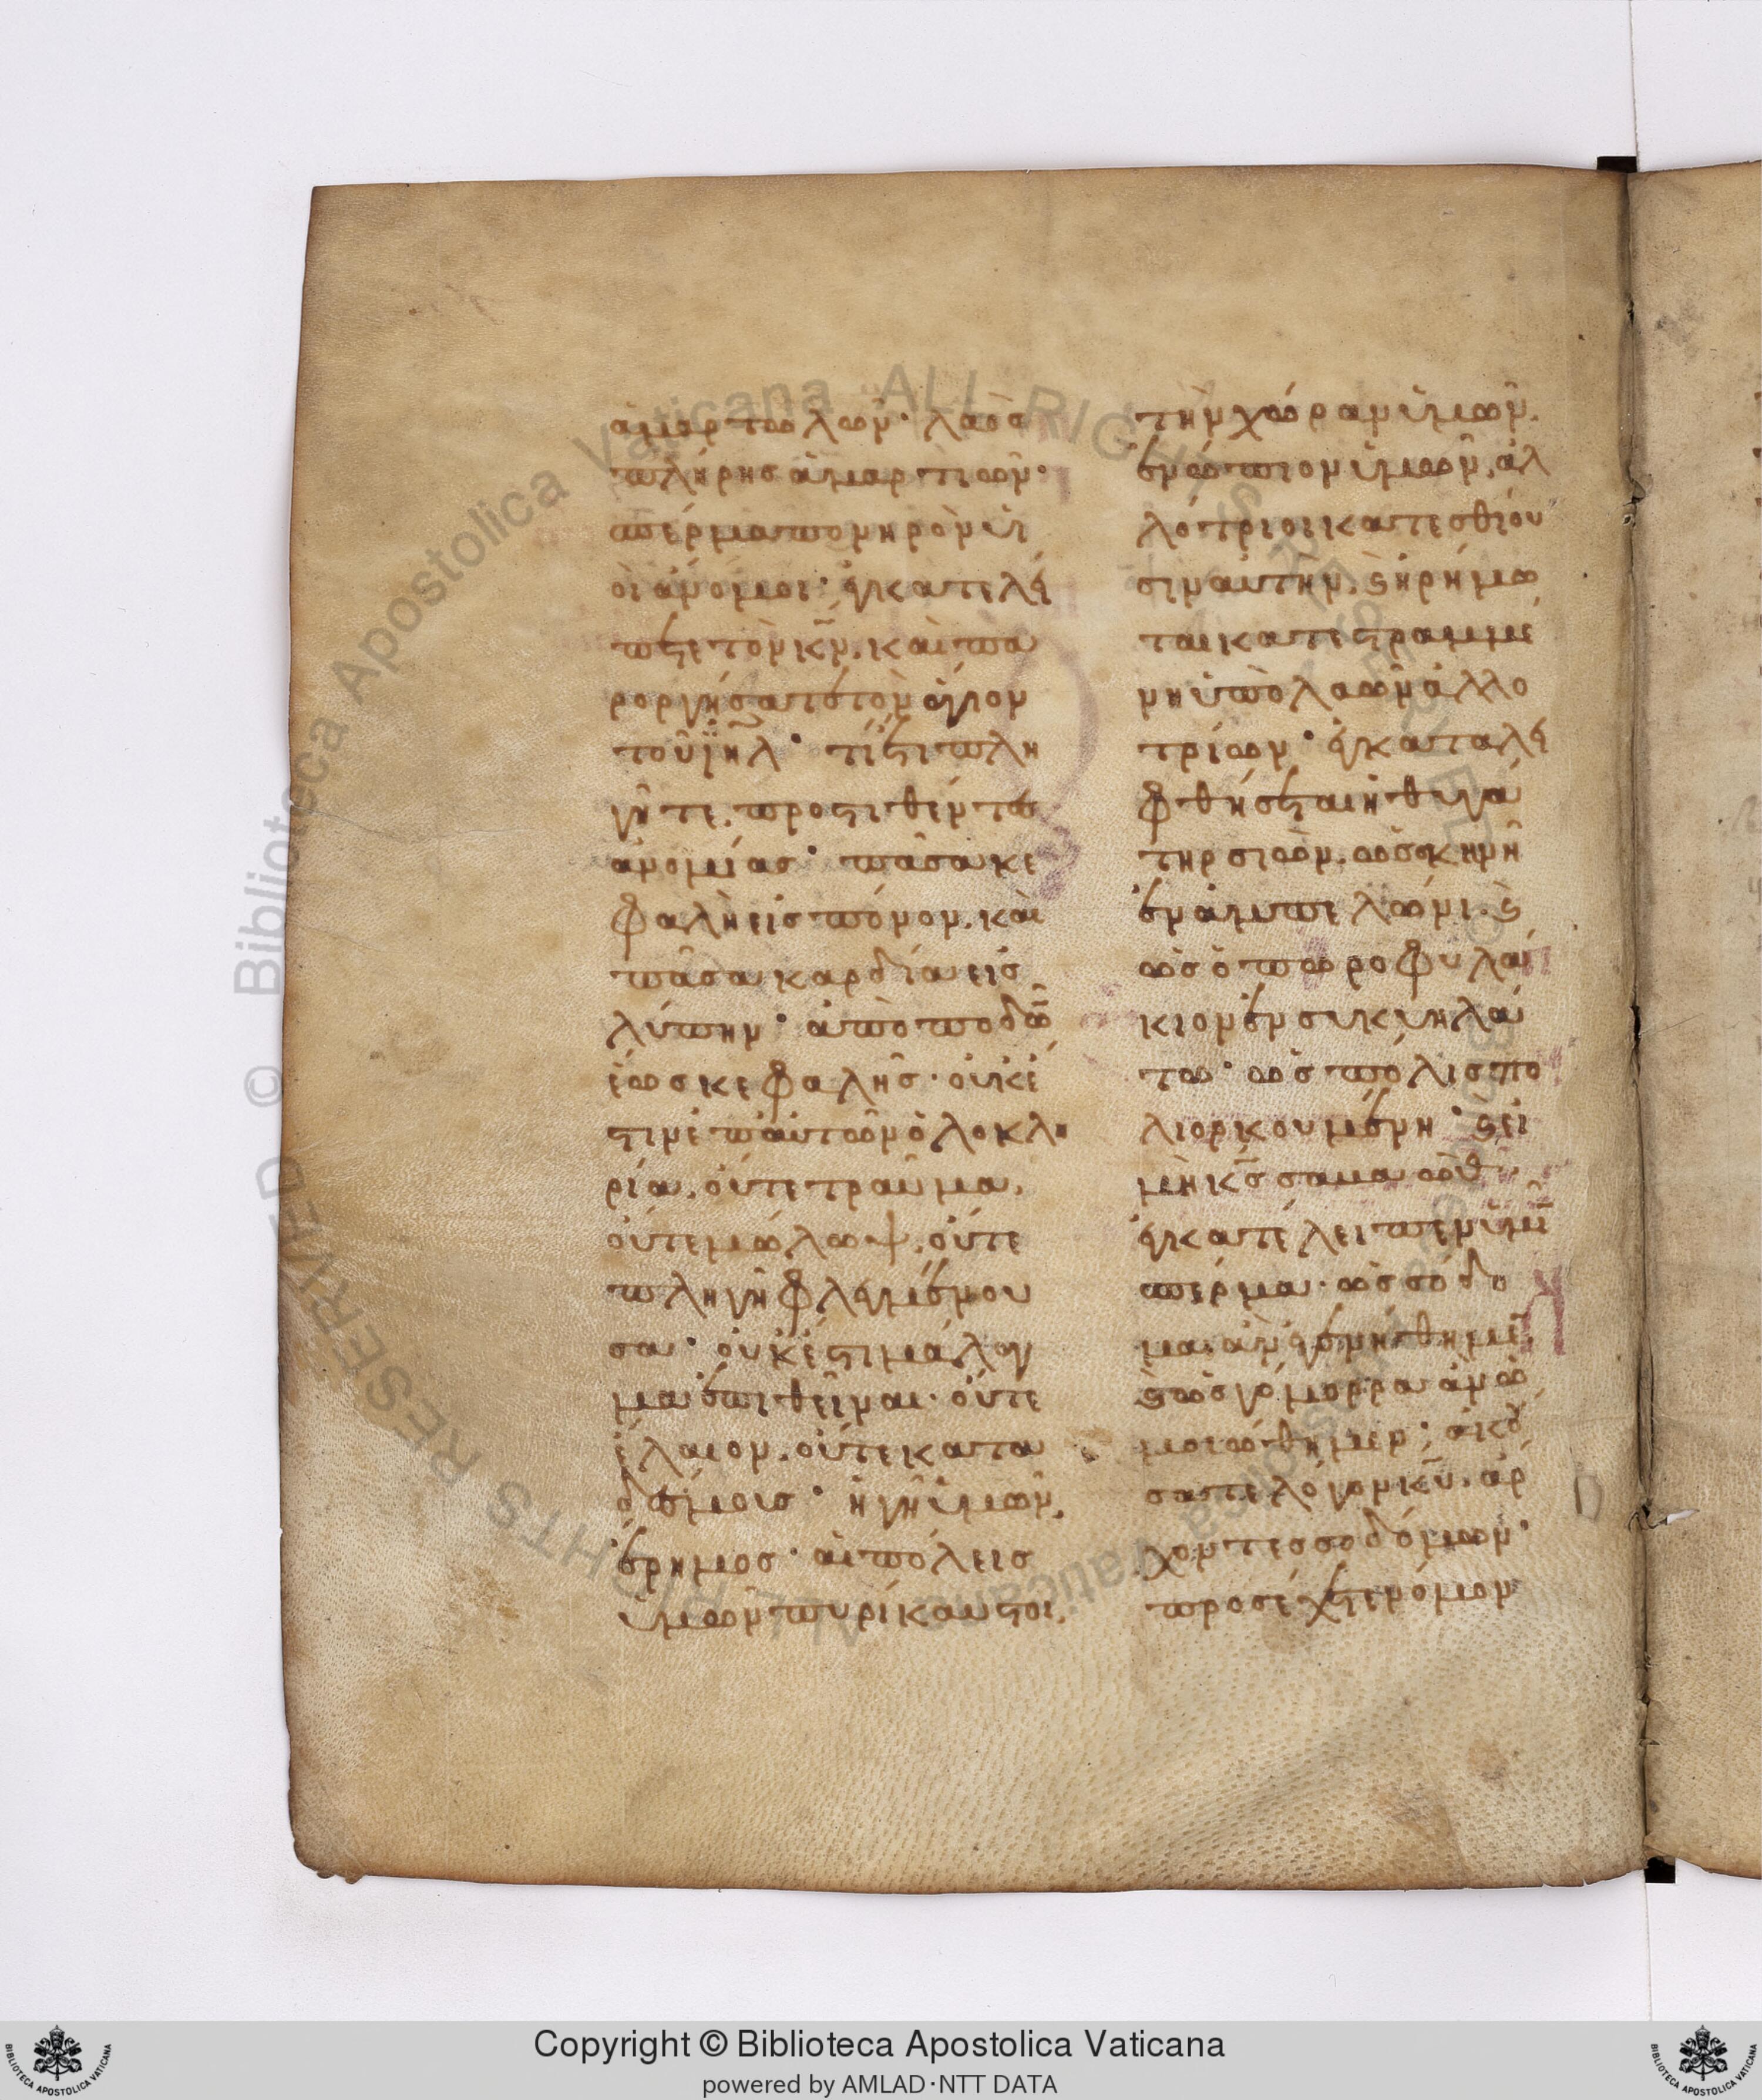 ἁμαρτωλῶν· λαὸσ
πλήρησ ἁμαρτιῶν·
σπέρμα πονηρὸν ὑι
οὶ ἄνομοι· ἐγκατελεί
πετε τὸν κ̅ν̅. καὶ πα
ροργήσατε τὸν ἅγιον
τοῦ ι̅η̅λ̅· τί ἔτι πλη
γῆτε. προστιθέντεσ
ἀνομίασ· πᾶσα κε
φαλὴ εἰσ πόνον. καὶ
πᾶσα καρδία εἰσ
λύπην· ἀπὸ ποδῶ̅
ἕωσ κεφαλῆσ· οὐκ ἔ
στιν ἐπ' ἀυτῶν ὁλοκλη
ρία. ὄυτε τραῦμα.
ὄυτε μώλωψ. ὄυτε
πληγὴ φλεγμαίνου
σα· οὐκ ἔστι μάλαγ
μα ἐπιθεῖναι· ὄυτε
ἔλαιον. ὄυτε κατα
δέσμουσ· ἡ γῆ ὑμῶν,
ἔρημοσ· ἁι πόλεισ
ὑμῶν πυρίκαυστοι.
τὴν χώραν ὑμῶν.
ἐνώπιον ὑμῶν, ἀλ
λότριοι κατεσθίου
σιν ἀυτήν. ϗ ἠρήμω
ται κατεστραμμέ
νη ὑπὸ λαῶν ἀλλο
τρίων· ἐγκαταλει
φθήσεται ἡ θυγά
τηρ σιών. ὡσ σκηνὴ
ἐν ἀμπελῶνι. ϗ
ὡσ ὀπωροφυλά
κιον ἐν σικυηλά
τω· ὡσ πόλισ πο
λιορκουμένη· ϗ εἰ
μὴ κ̅σ̅ σαμαὼθ
ἐγκατέλειπεν ἡμῖ̅
σπέρμα· ὡσ σόδο
μα ἂν ἐγενήθημεν.
ϗ ὡσ γόμορρα ἂν ὡ
μοιώθημεν· ἀκού
σατε λόγον κ̅υ̅. ἄρ
χοντεσ σοδόμων·
προσέχετε νόμον
Copyright © Biblioteca Apostolica Vaticana
powered by AMLAD·NTT DATA